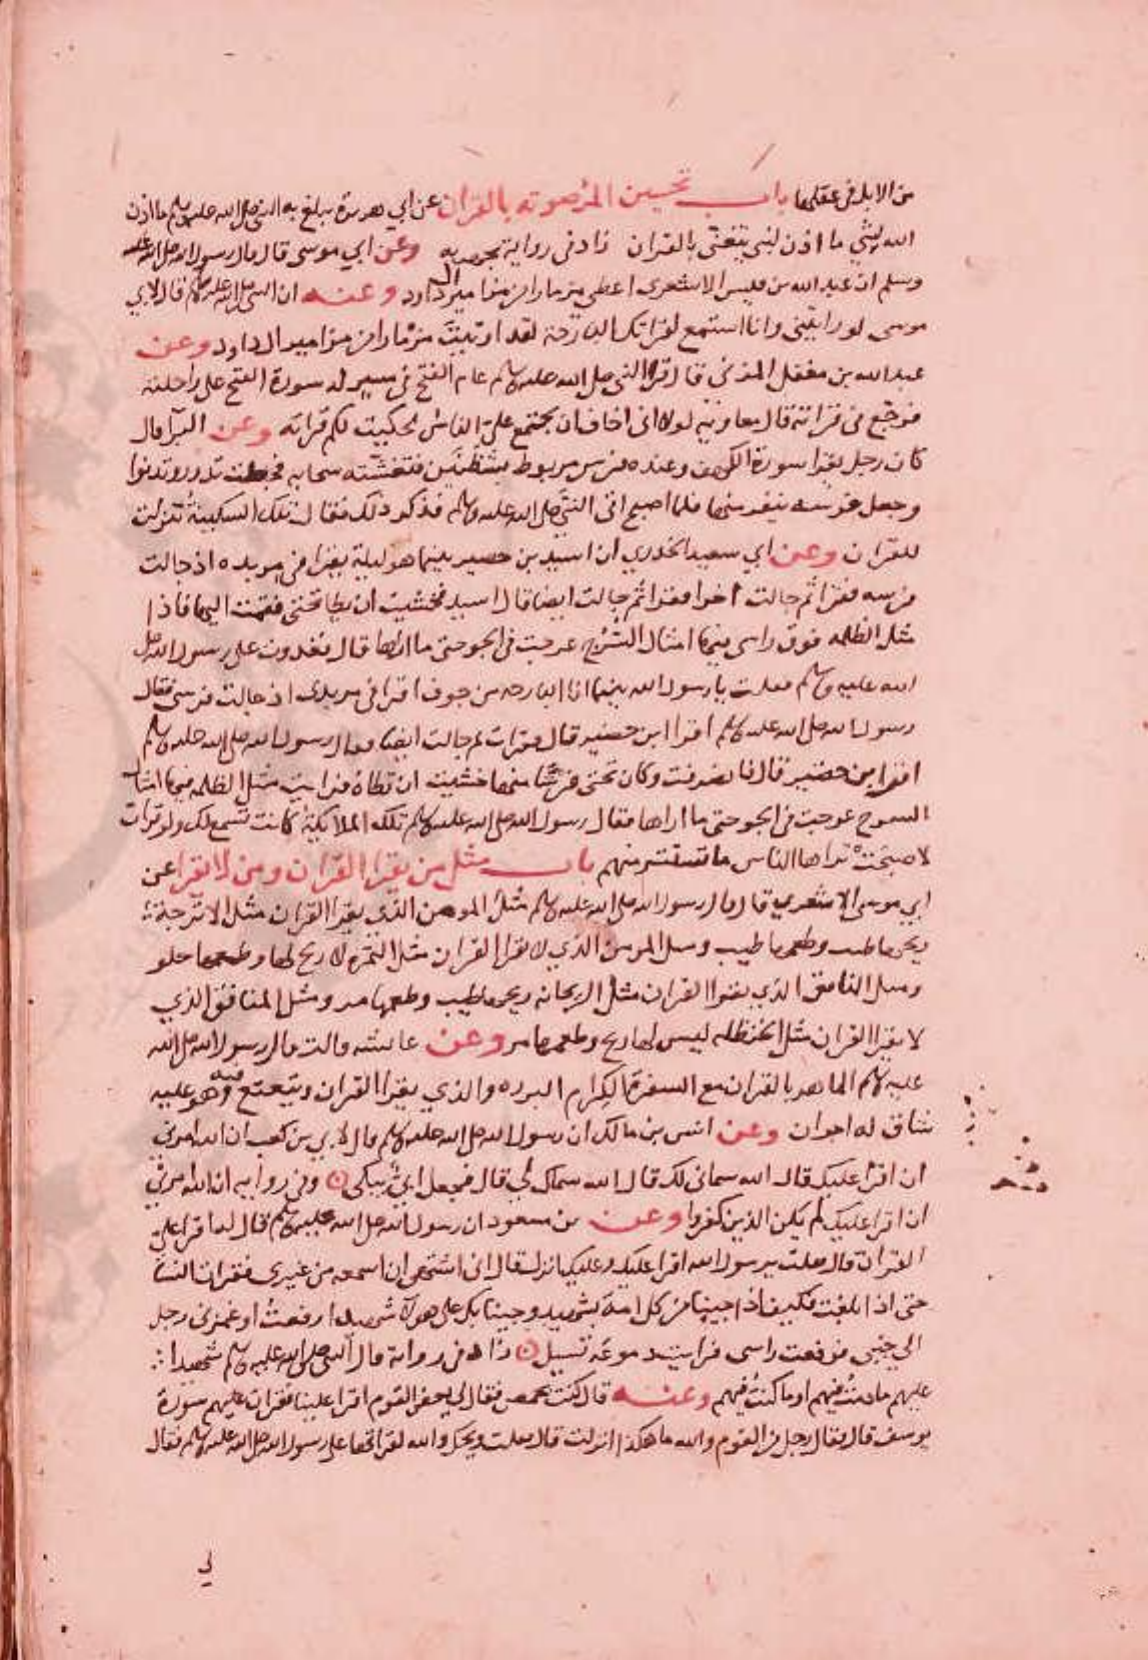 من الابل في عقلها باب تحسين المرء صوته بالقران عن ابي هريرة يبلغ به النبي صلى الله عليه وسلم ما اذن
الله لشي ما اذن لنبي يتغنى بالقران زاد في رواية يجهر به وعن ابي موسى قال قال رسول الله صلى الله عليه
وسلم ان عبد الله بن قيس الاشعري اعطي مزمارا من مزامير ال داود وعنه ان النبي صلى الله عليه وسلم قال لابي
موسى لو رايتني وانا استمع لقراتك البارحة لقد اوتيت مزمارا من مزامير ال داود وعن
عبد الله بن مغفل المزني قال قرا النبي صلى الله عليه وسلم عام الفتح في مسير له سورة الفتح على راحلته
فرجع في قراته قال معاويه لولا اني اخاف ان يجتمع علي الناس لحكيت لكم قراته وعن البرا قال
كان رجل يقرا سورة الكهف وعنده فرس مربوط بشطنين فتغشته سحابه فجعلت تدور وتدنوا
وجعل فرسه ينفر منها فلما اصبح اتى النبي صلى الله عليه وسلم فذكر ذلك فقال تلك السكينة تنزلت
للقران وعن ابي سعيد الخدري ان اسيد بن حضير بينما هو ليلة يقرا في مربده اذ جالت
فرسه فقرا ثم جالت اخرا فقرا ثم جالت ايضا قال اسيد فخشيت ان يطا يحيى فقمت اليها فاذا
مثل الظله فوق راسي فيها امثال السرج عرجت في الجو حتى ما اراها قال فغدوت على رسول الله صلى
الله عليه وسلم فقلت يا رسول الله بينما انا البارحه من جوف اقرا في مربدي اذ جالت فرسي فقال
رسول الله صلى الله عليه وسلم اقرا ابن حضير قال فقرات ثم جالت ايضا فقال رسول الله صلى الله عليه وسلم
اقرا ابن حضير قال فانصرفت وكان يحيى قريبا منها خشيت ان تطاه فرايت مثل الظله فيها امثال
السرج عرجت في الجو حتى ما اراها فقال رسول الله صلى الله عليه وسلم تلك الملايكة كانت تسمع لك ولو قرات
لاصبحت تراها الناس ما تستتر منهم باب مثل من يقرا القران ومن لا يقرا عن
ابي موسى الاشعري قال قال رسول الله صلى الله عليه وسلم مثل المومن الذي يقرا القران مثل الاترجة
ريحها طيب وطعمها طيب ومثل المومن الذي لا يقرا القران مثل التمره لا ريح لها وطعمها حلو
ومثل المنافق الذي يقرا القران مثل الريحانه ريحها طيب وطعمها مر ومثل المنافق الذي
لا يقرا القران مثل الحنظله ليس لها ريح وطعمها مر وعن عائشه قالت قال رسول الله صلى الله
عليه وسلم الماهر بالقران مع السفرة الكرام البرره والذي يقرا القران ويتعتع فيه وهو عليه
شاق له اجران وعن انس بن مالك ان رسول الله صلى الله عليه وسلم قال لابي بن كعب ان الله امرني
ان اقرا عليك قال الله سماني لك قال الله سماك لي قال فجعل ابي يبكي وفي روايه ان الله امرني
ان اقرا عليك لم يكن الذين كفروا وعن بن مسعود ان رسول الله صلى الله عليه وسلم قال له اقرا علي
القران قال فقلت يرسول الله اقرا عليك وعليك انزل قال اني اشتهي ان اسمعه من غيري فقرات النسا
حتى اذا بلغت فكيف اذا جينا من كل امة بشهيد وجينا بك على هولا شهيدا رفعت او غمزني رجل
الى جنبي فرفعت راسي فرايت دموعه تسيل زاد في رواية قال النبي صلى الله عليه وسلم شهيدا
عليهم ما دمت فيهم او ما كنت فيهم وعنه قال كنت بحمص فقال لي بعض القوم اقرا علينا فقرات عليهم سورة
يوسف قال فقال رجل من القوم والله ما هكذا انزلت قال فقلت ويحك والله لقراتها على رسول الله صلى الله عليه وسلم فقال
لي